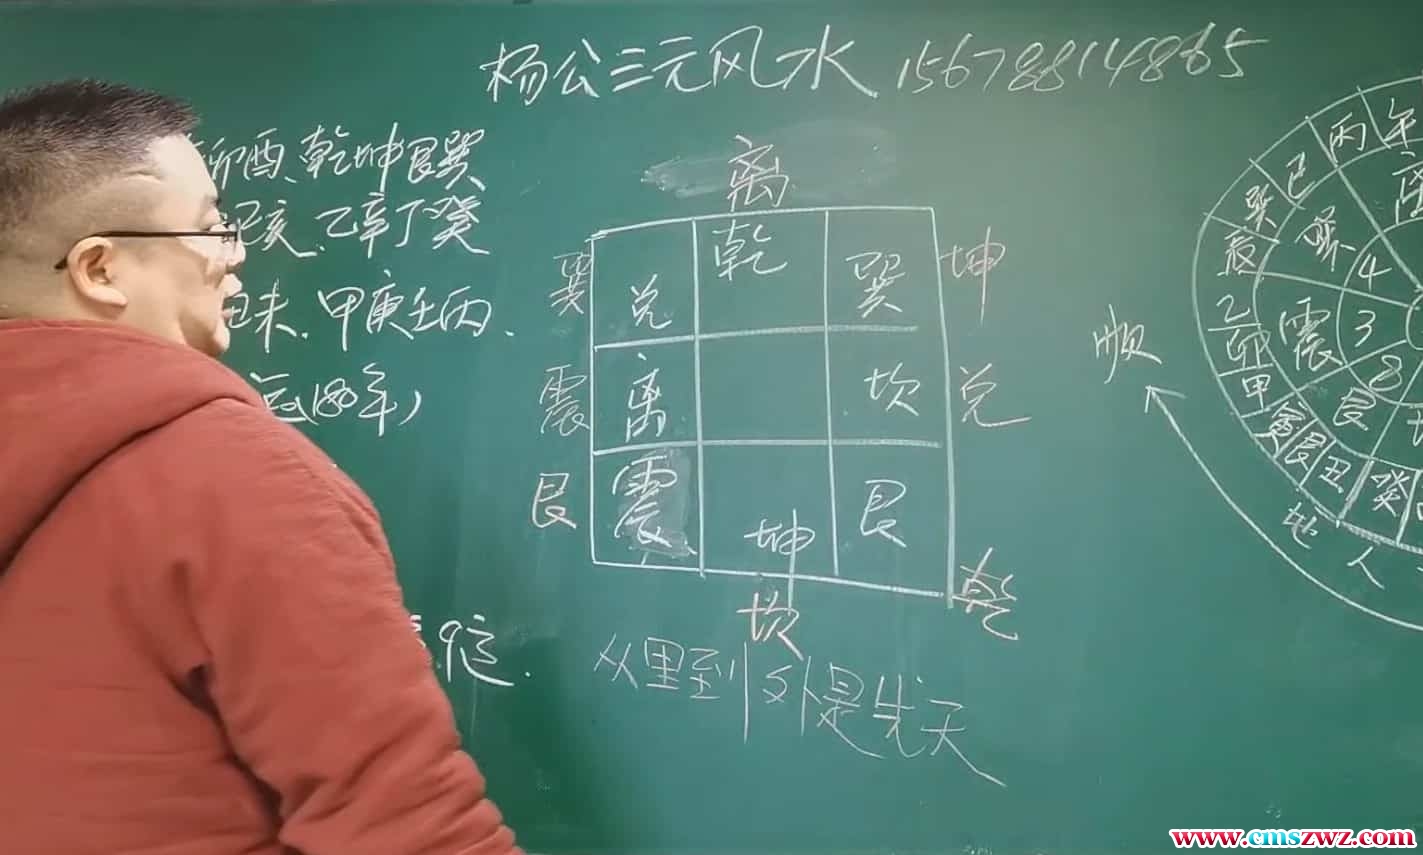 杨公三元风水 15678814865
卯酉、乾坤艮巽
巳亥、乙辛丁癸
丑未、甲庚壬丙、
180年)
定.
离
巽 兑 乾 巽 坤
震 离 坎 兑
艮 震 坤 艮 乾
坎
从里到外是先天
顺
午
丙
巳
巽
辰
乙
卯
甲
艮
丑
癸
离
巽
震
艮
4
3
8
地
人
www.cmszwz.com